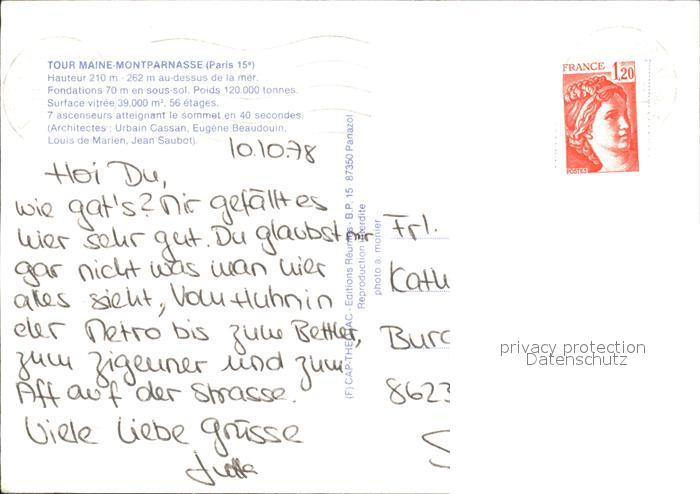 TOUR MAINE-MONTPARNASSE (Paris 15e)
Hauteur 210 m - 262 m au-dessus de la mer.
Fondations 70 m en sous-sol. Poids 120.000 tonnes.
Surface vitrée 39.000 m². 56 étages.
7 ascenseurs atteignant le sommet en 40 secondes.
(Architectes : Urbain Cassan, Eugène Beaudouin,
Louis de Marien, Jean Saubot).
10.10.78
Hoi Du,
wie gat's? Mir gefällt es
hier sehr gut. Du glaubst mir
gar nicht was man hier
alles sieht, Vom Huhn in
der Metro bis zum Bettler,
zum Zigeuner und zum
Aff auf der Strasse.
Viele liebe Grüsse
Jutta
(F) CAP-THEOJAC - Editions Réunies - B.P. 15 87350 Panazol
Reproduction interdite
photo a. monier
FRANCE 1,20
POSTES
Frl.
Kath
Burg
8623
privacy protection
Datenschutz